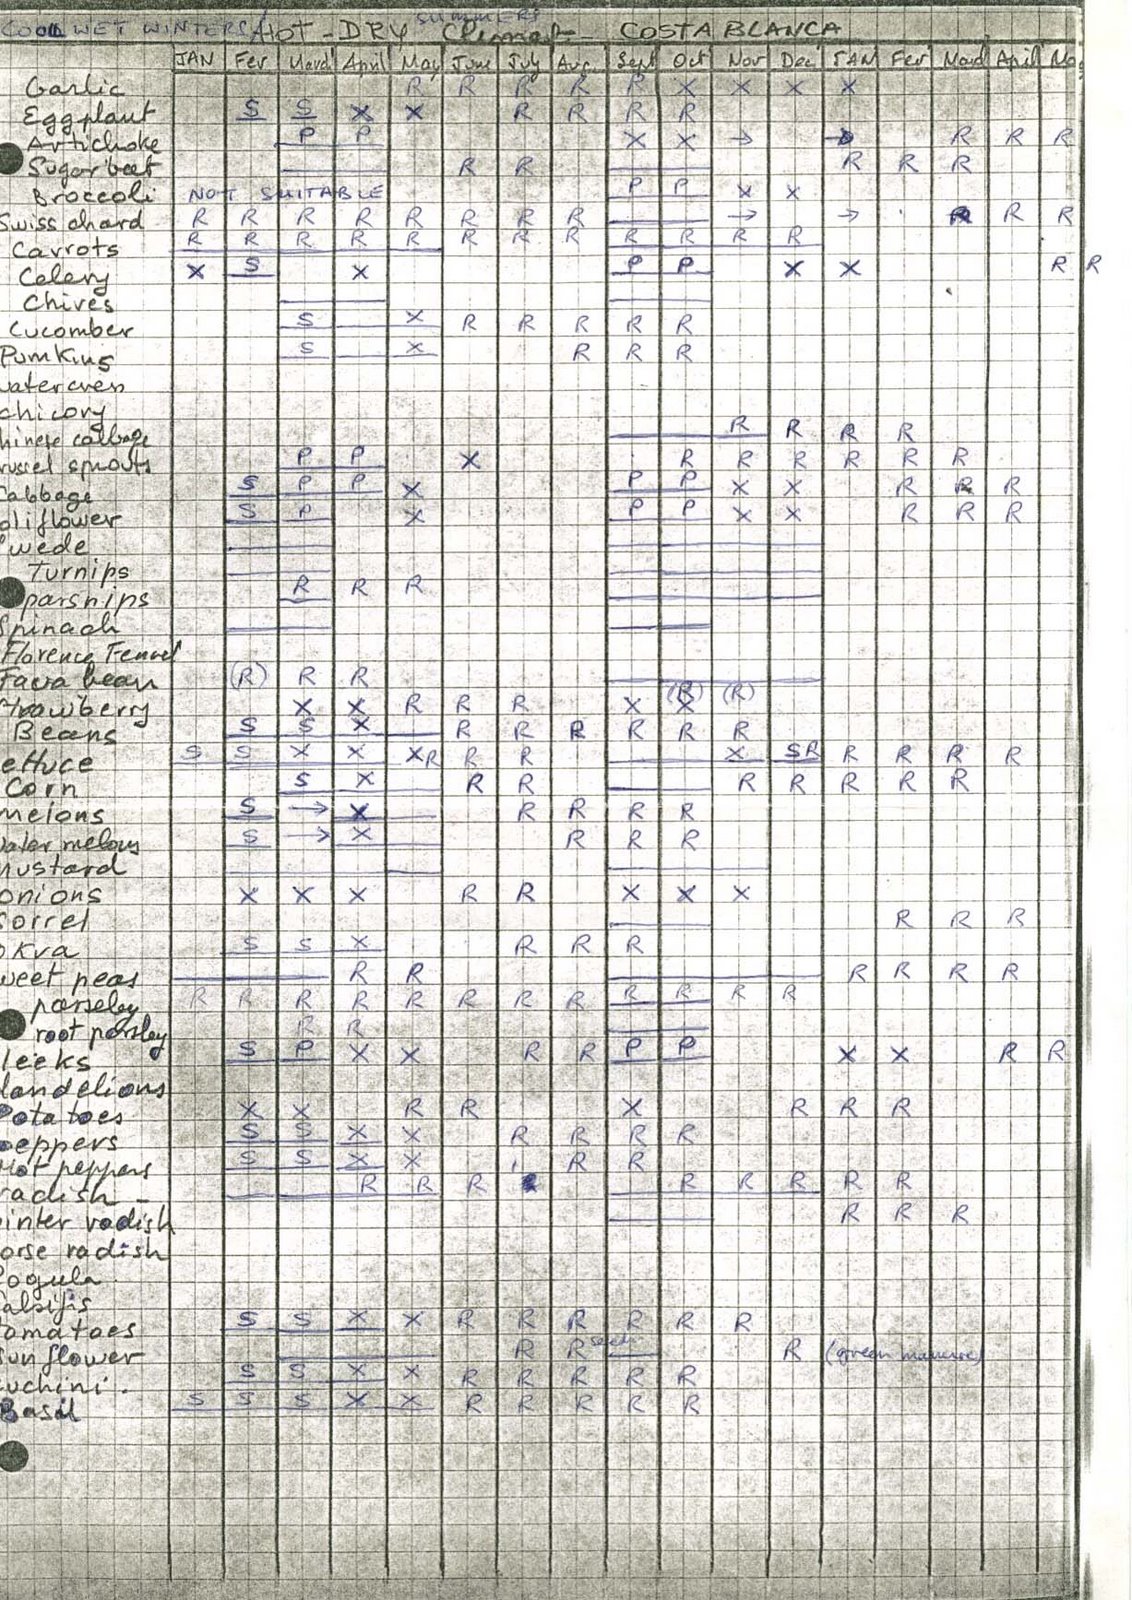 COOL WET WINTERS/HOT - DRY SUMMERS Climat - COSTA BLANCA
JAN Fev March April May June July Aug. Sept Oct Nov Dec JAN Fev March April Ma
Garlic R R R R R X X X X
Eggplant S S X X R R R R
Artichoke P P X X → → R R R
Sugar beet R R R R R
Broccoli NOT SUITABLE P P X X
Swiss chard R R R R R R R R → → R R R
Carrots R R R R R R R R R R R R
Celery X S X P P X X R R
Chives
Cucomber S X R R R R R
Pumkins S X R R R
watercress
chicory
hinese cabbage R R R R
russel sprouts P P X R R R R R R
Cabbage S P P X P P X X R R R
oliflower S P X P P X X R R R
wede
Turnips
parsnips R R R
Spinach
Florence Fennel
Fava bean (R) R R
Strawberry X X R R R X X (R) (R)
Beans S S X R R R R R R
ettuce S S X X XR R R X SR R R R R
Corn S X R R R R R R R
melons S → X R R R R
Water melons S → X R R R
mustard
onions X X X R R X X X
Sorrel R R R
okra S S X R R R
weet peas R R R R R R
parseley R R R R R R R R R R R R
root parsley R R
leeks S P X X R R P P X X R R
dandelions
Potatoes X X R R X R R R
peppers S S X X R R R R
Hot peppers S S X X R R
radish - R R R R R R R R R
inter radish R R R
orse radish
Rogula
alsifis
omatoes S S X X R R R R R R
Sunflower R R seeds R (green manure)
uchini. S S X X R R R R R
Basil S S S X X R R R R R